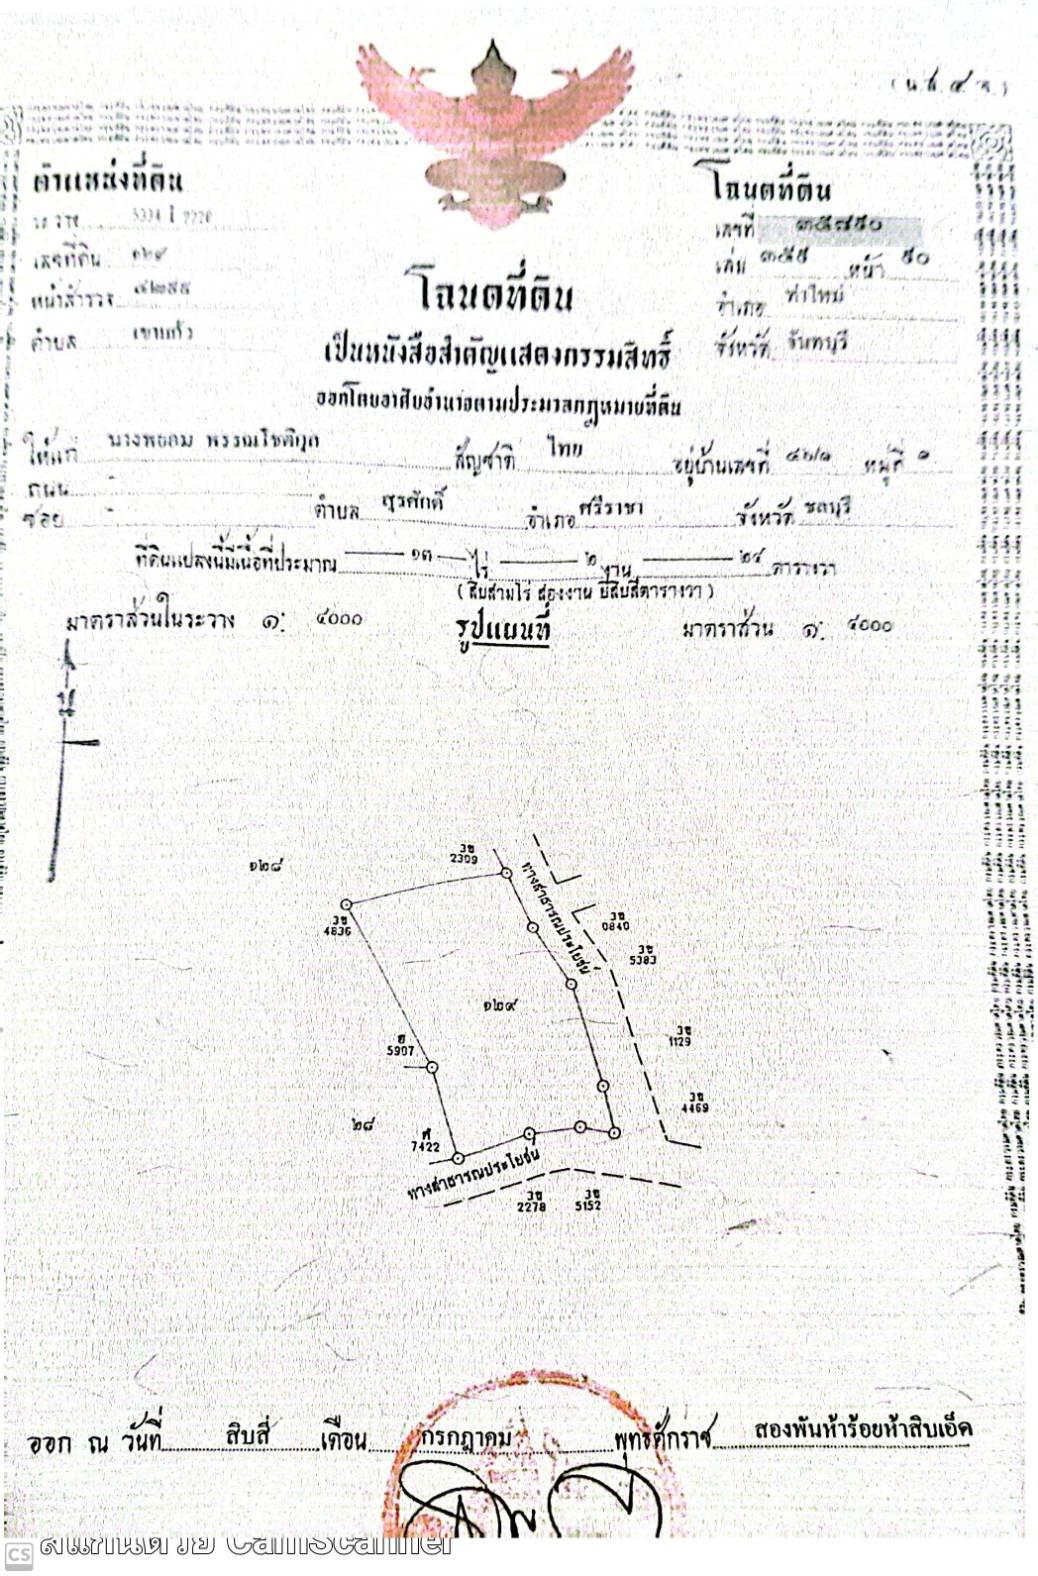 (น.ส. ๔ จ.)
ตำแหน่งที่ดิน
ระวาง 5334 I 7220
เลขที่ดิน ๑๒๙
หน้าสำรวจ ๔๒๙๕
ตำบล เขาแก้ว
โฉนดที่ดิน
เลขที่ ๓๕๘๕๐
เล่ม ๓๕๙ หน้า ๕๐
อำเภอ ท่าใหม่
จังหวัด จันทบุรี
โฉนดที่ดิน
เป็นหนังสือสำคัญแสดงกรรมสิทธิ์
ออกโดยอาศัยอำนาจตามประมวลกฎหมายที่ดิน
ให้แก่ นางพยอม สัญชาติ ไทย อยู่บ้านเลขที่ หมู่ที่ ๑
ถนน -
ซอย - ตำบล สุรศักดิ์ อำเภอ ศรีราชา จังหวัด ชลบุรี
ที่ดินแปลงนี้มีเนื้อที่ประมาณ ๑๓ ไร่ ๒ งาน ๒๔ ตารางวา
( สิบสามไร่ สองงาน ยี่สิบสี่ตารางวา )
มาตราส่วนในระวาง ๑: ๔๐๐๐ รูปแผนที่ มาตราส่วน ๑: ๔๐๐๐
น
๑๒๘
3ข
2309
ทางสาธารณประโยชน์
3ข
4836
3ข
0840
3ข
5383
๑๒๙
3ข
1129
ฮ
5907
3ข
4469
๒๘
ศ
7422
ทางสาธารณประโยชน์
3ข
2278
3ข
5152
ออก ณ วันที่ สิบสี่ เดือน กรกฎาคม พุทธศักราช สองพันห้าร้อยห้าสิบเอ็ด
CS สแกนด้วย CamScanner